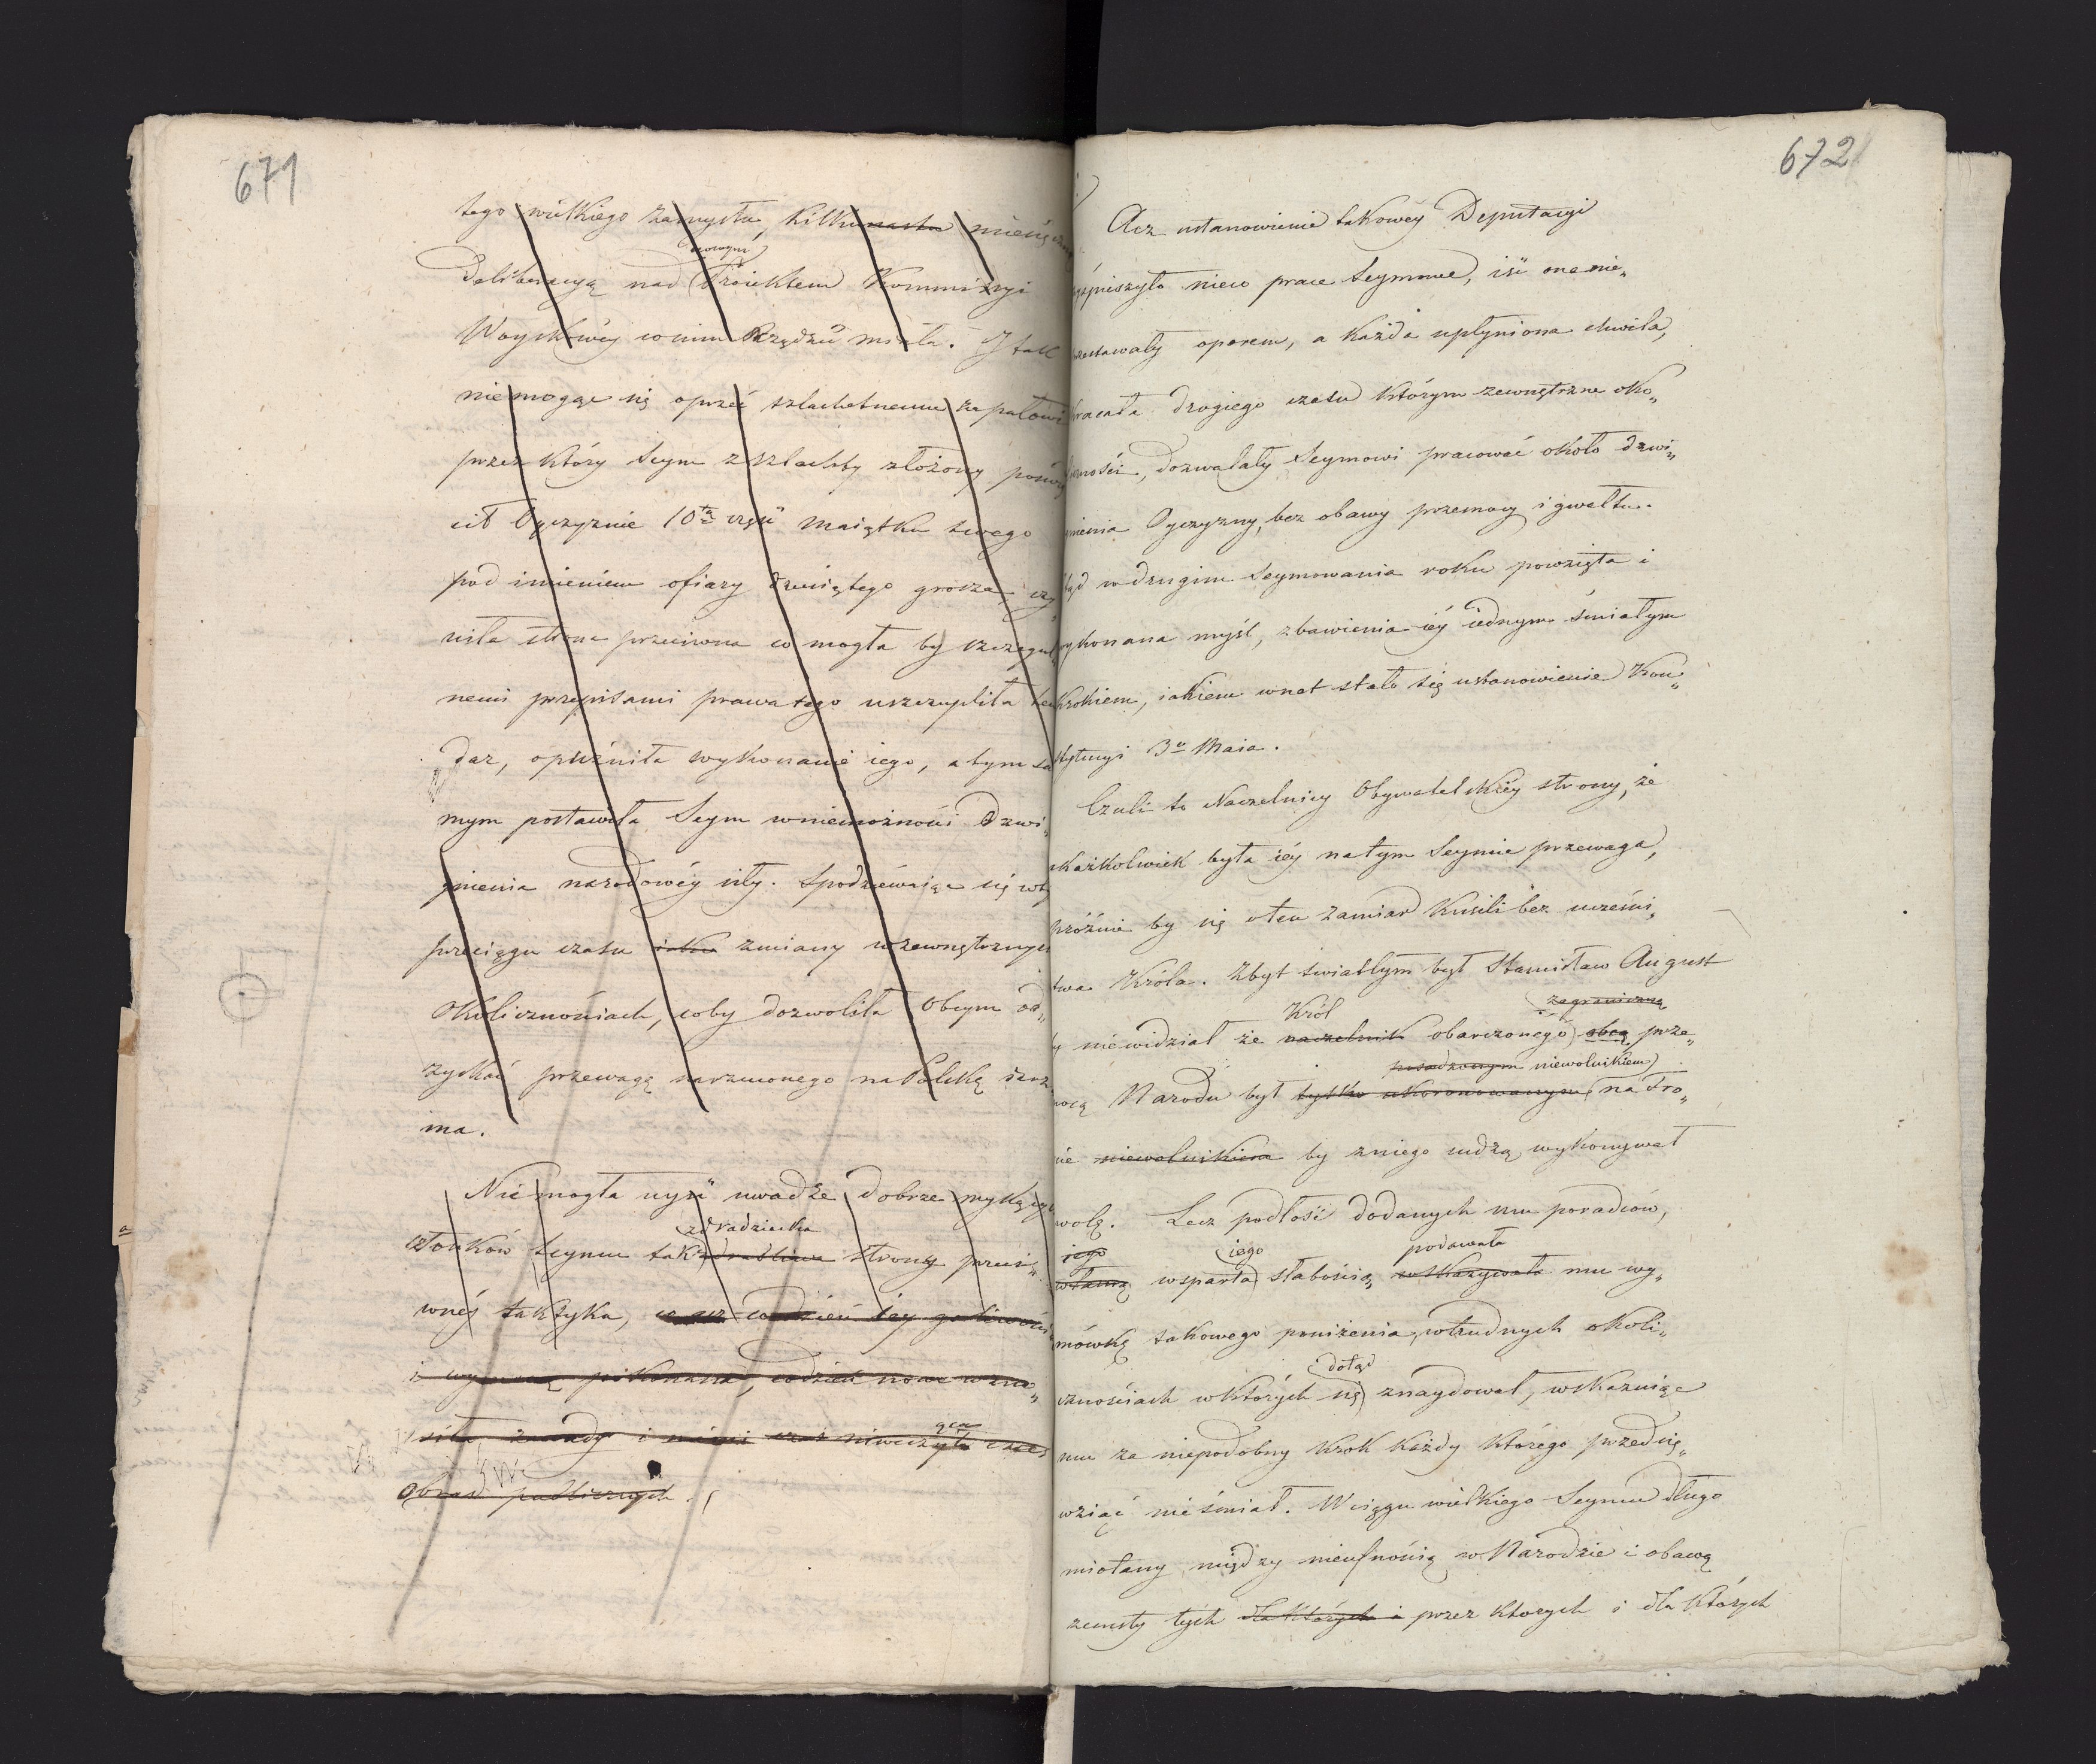 671
tego wielkiego zamysłu, kilkunasto miesięczn
nowym
Deliberacyą nad Proiektem Kommissyi
Woyskowéy co nim Rządzić miała. I tak
niemogąc się oprzeć szlachetnemu zapałowi
przez który Seym z szlachty złożony poświę
cił Oyczyznie 10tą część Maiątku swego
pod imieniem ofiary dziesiątego grosza, czy„
niła strona przeciwna co mogła by szczegul„
nemi przepisami prawa tego uszczupliła ten
dar, opuźniła wykonanie iego, a tym sa
mym postawiła Seym w niemożności Dzwi„
gnienia narodowéy siły. Spodziewając się w tey
przeciągu czasu iaka zmiany w zewnętrznych
Okolicznościach, coby dozwoliła Obcym od„
zyskać przewagę narzuconego na Polskę iarz„
ma.
Nie mogła uyść uwadze dobrze myślących
zdradziecka
członków Seymu tak zdradliwa strony przeci„
wnéj taktyka,
i pokonana, codzień nowe wzno„
siła zawady i niweczyła czas
gca
Obrad publicznych.
672
Acz ustanowienie takowéy Deputacyi
zyśpieszyło nieco prace Seymowe, iść one nie„
przestawały oporem, a każda upłyniona chwila,
tracała drogiego czasu którym zewnętrzne oko„
liczności, dozwalały Seymowi pracować około dzwi„
gnienia Oyczyzny, bez obawy przemocy i gwałtu.
tąd w drugim Seymowania roku powzięta i
wykonana myśl, zbawienia iéy iednym śmiałym
Krokiem, iakiem wnet stało się ustanowienie Kon„
stytucyi 3o Maia.
Czuli to Naczelnicy Obywatelskiéy strony, że
iakażkolwiek była iéy na tym Seymie przewaga,
próżnie by się o ten zamiar kusili bez uczestni„
twa Króla. Zbyt światłym był Stanisław August
Król zagraniczną
by niewidział że naczelnik obarczonego obcą prze„
posadzonym niewolnikiem
mocą Narodu był tylko ukoronowanym na Tro„
nie niewolnikiem by zniego cudzą wykonywał
wolę. Lecz podłość dodanych mu poradców,
iego iego podawała
własną wsparta słabością, wskazywała mu wy„
mówkę takowego poniżenia, w trudnych okoli„
dotąd
cznościach w których się znaydował, wskazuiąc
mu za niepodobny Krok każdy którego przedsię„
wziąć nie śmiał. W ciągu wielkiego Seymu długo
miotany między nieufnością w Narodzie i obawą
zemsty tych dla których i przez ktorych i dla których